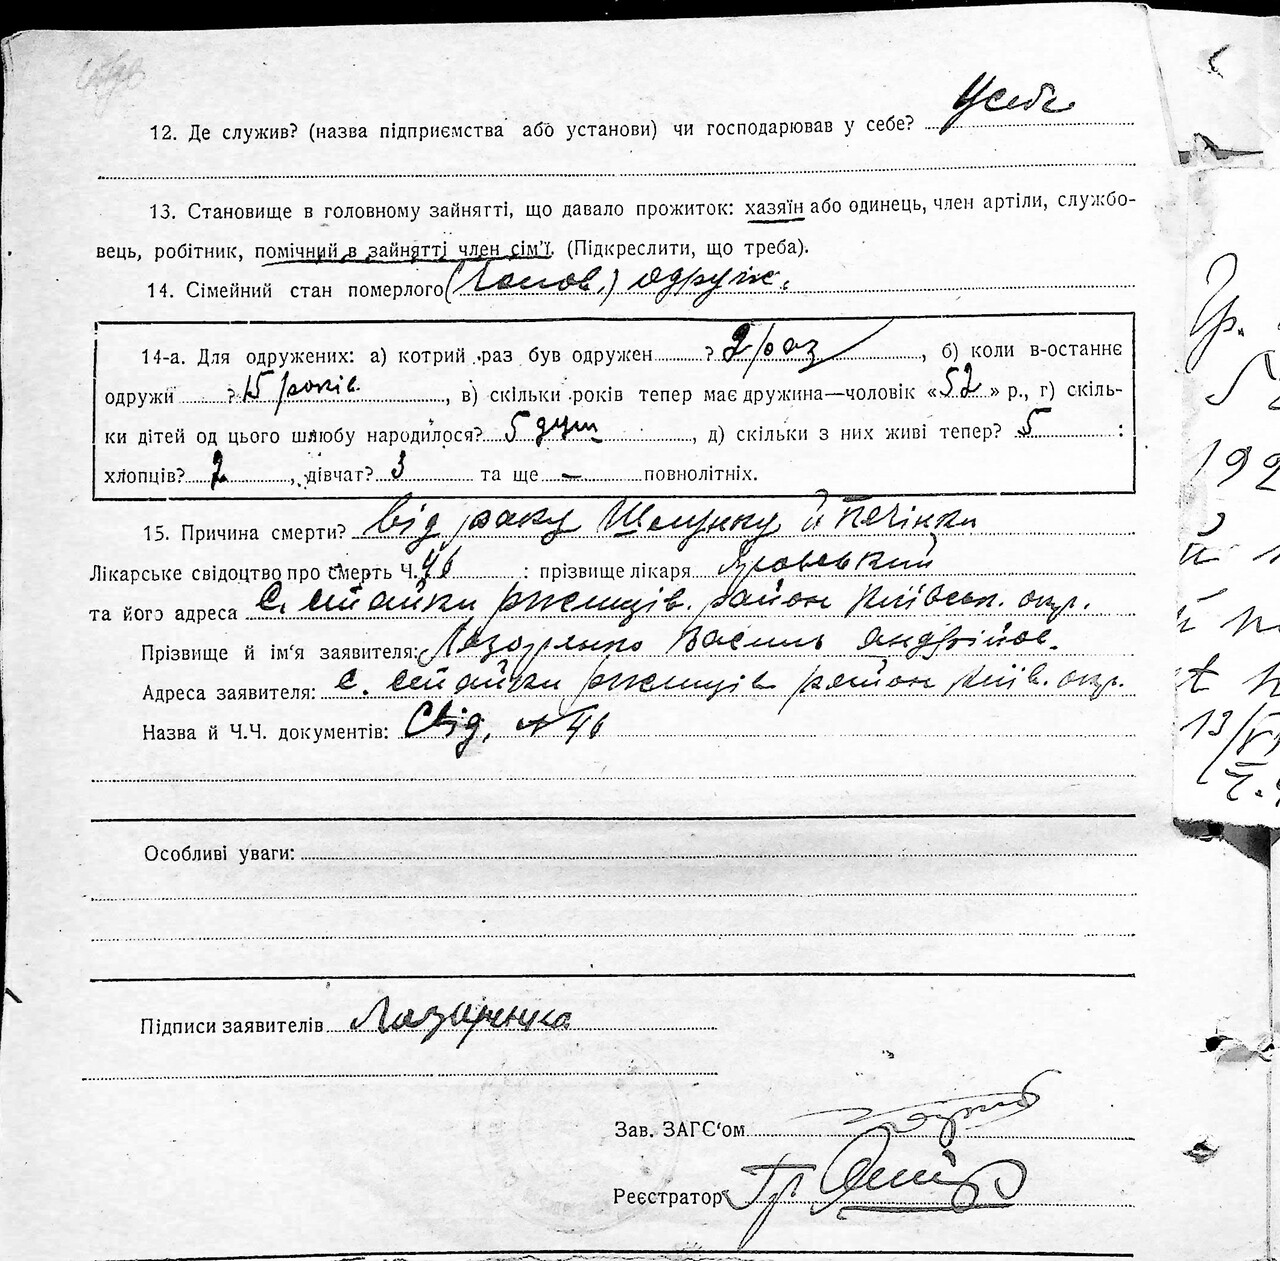 12. Де служив? (назва підприємства або установи) чи господарював у себе? У себе
13. Становище в головному зайнятті, що давало прожиток: хазяїн або одинець, член артіли, службо-
вець, робітник, помічний в зайнятті член сім'ї. (Підкреслити, що треба).
14. Сімейний стан померлого одруж.
14-а. Для одружених: а) котрий раз був одружен ? 2 раз, б) коли в-останнє
одружи ? 15 років, в) скільки років тепер має дружина—чоловік «52» р., г) скіль-
ки дітей од цього шлюбу народилося? 5 душ, д) скільки з них живі тепер? 5 :
хлопців? 2, дівчат? 3 та ще — повнолітніх.
15. Причина смерти? Від раку Шлунку й печінки
Лікарське свідоцтво про смерть Ч. 46 : прізвище лікаря
та його адреса С. Стайки Ржищів. район Київськ. окр.
Прізвище й ім'я заявителя: Лазаренко Василь Андрійов.
Адреса заявителя: С. Стайки Ржищів район Київ. окр.
Назва й Ч.Ч. документів: Свід. № 46
Особливі уваги:
Підписи заявителів Лазаренко
Зав. ЗАГС'ом
Реєстратор
Гр.
192
13/